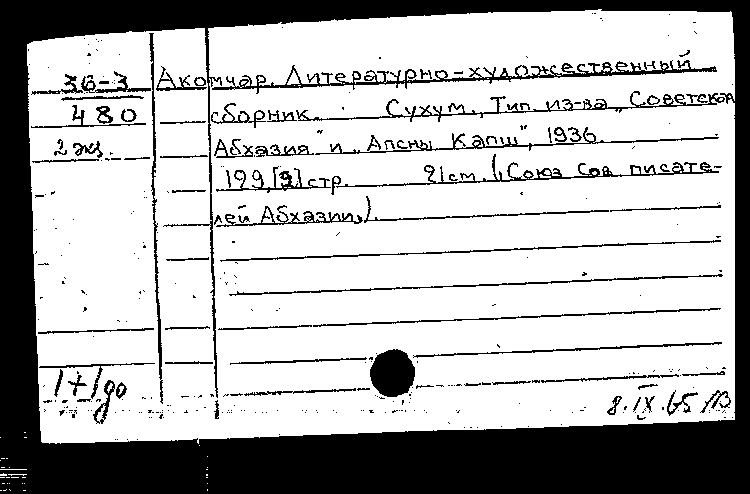 36-3 Акомчар. Литературно-художественный
480 сборник. Сухум., Тип. из-ва „Советская
2 экз. Абхазия" и „Апсны Капш", 1936.
199,[2]стр. 21см. (Союз Сов. писате-
лей Абхазии.)
1+1до
8.IX.65